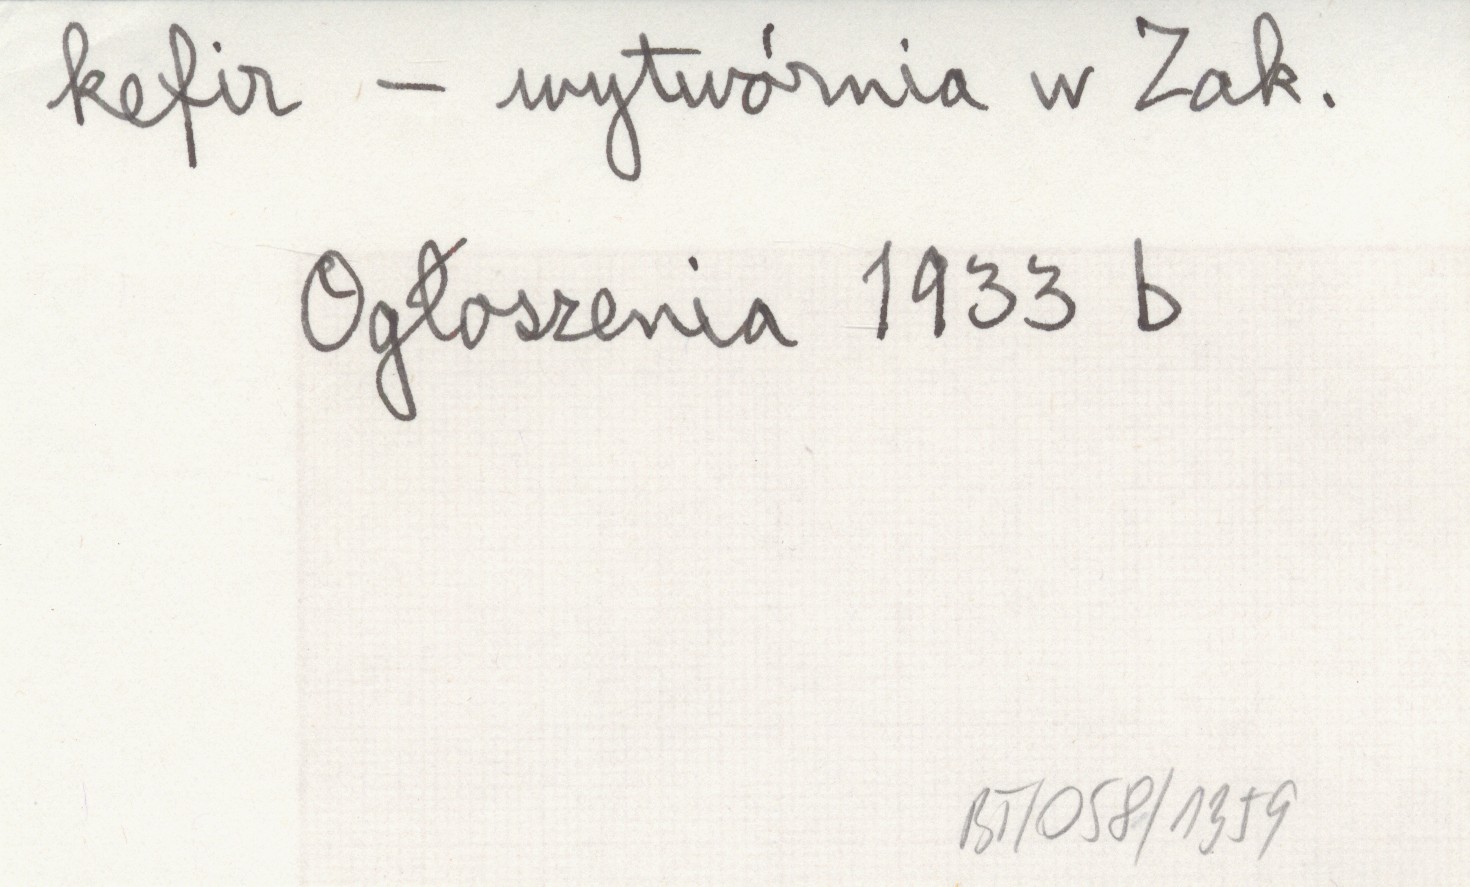 kefir – wytwórnia w Zak.
Ogłoszenia 1933 b
BT/058/1359